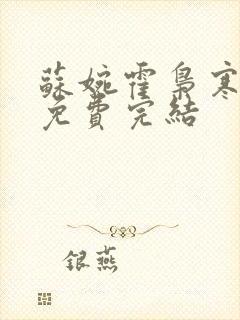 蘇婉霍梟寒
免費完結
銀燕